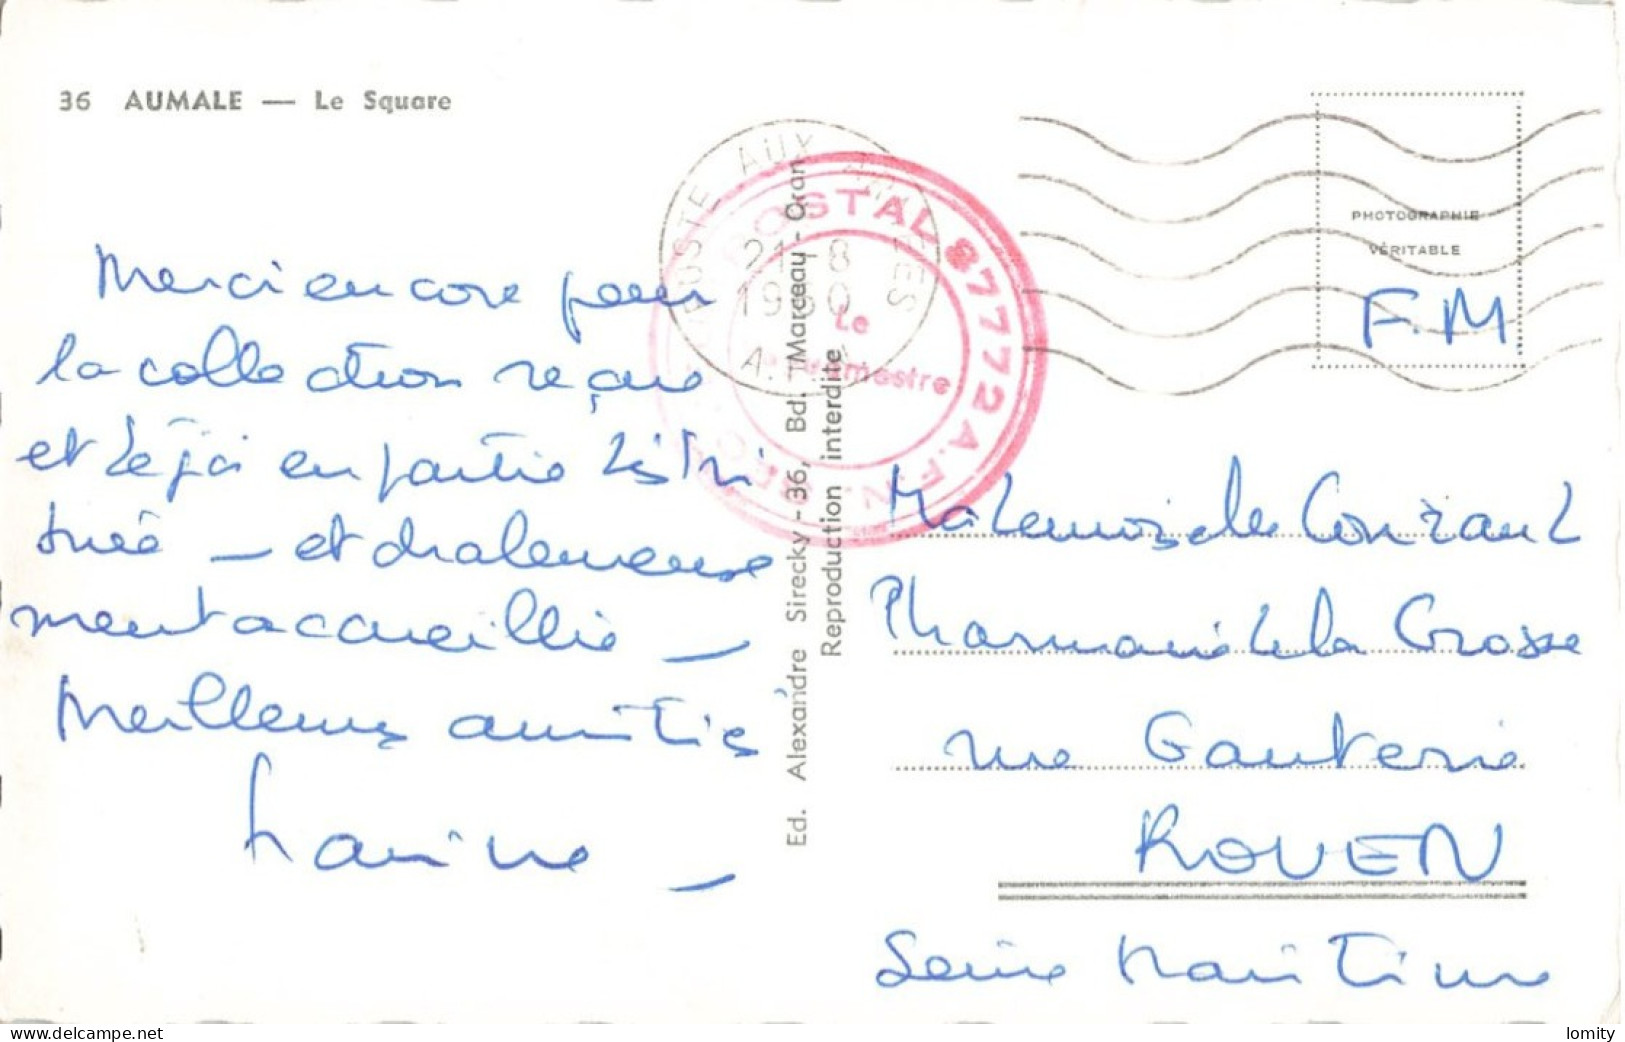 36 AUMALE — Le Square
Merci encore pour
la collection reçue
et déjà en partie distri
buée — et chaleureuse
ment accueillie —
Meilleures amitiés
POSTE AUX ARMEES
21-8
1960
A.F.N
POSTAL 87772 A.F.N.
Le
Vaguemestre
Ed. Alexandre Sirecky - 36, Bd. Marceau - Oran
Reproduction interdite
PHOTOGRAPHIE
VÉRITABLE
F.M
Mademoiselle
Pharmacie de la Crosse
rue Ganterie
ROUEN
Seine Maritime
www.delcampe.net
lomity